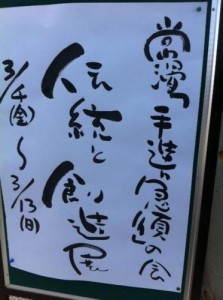 常滑「手造り急須」の会
伝統と創造展
3/4(金)～3/13(日)